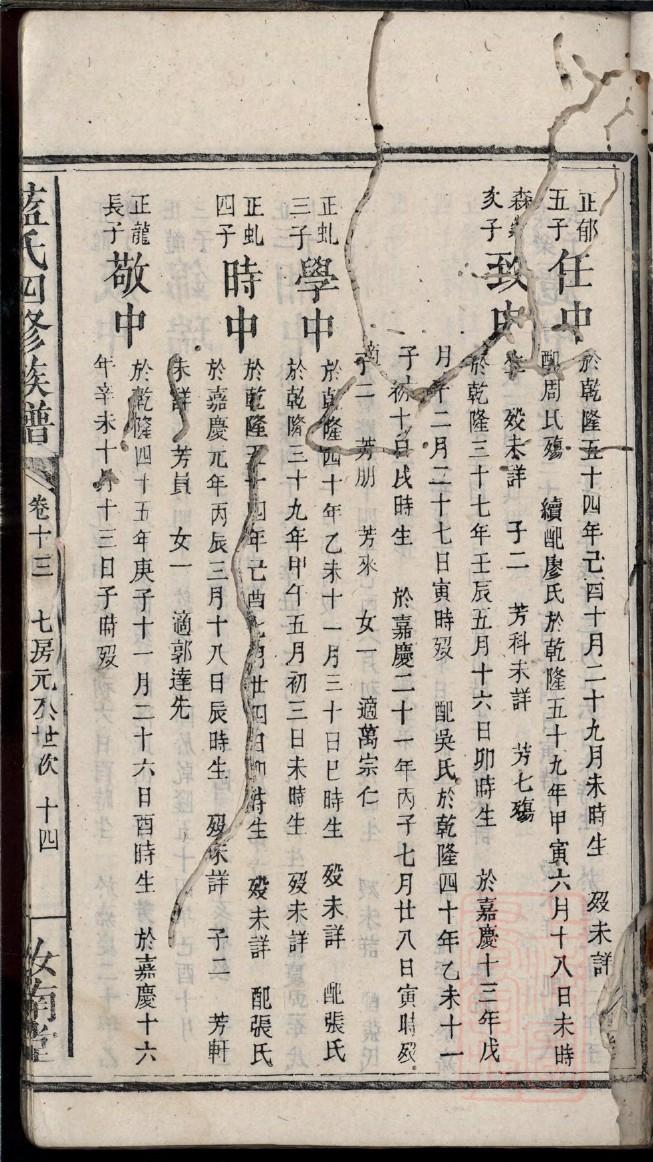 正郁
五子
任中
於乾隆五十四年己酉十月二十九月未時生 歿未詳
配周氏殤 續配廖氏於乾隆五十九年甲寅六月十八日未時
歿未詳 子二 芳科未詳 芳七殤
森
亥子
致中
於乾隆三十七年壬辰五月十六日卯時生 於嘉慶十三年戊
月年二月二十七日寅時歿 配吳氏於乾隆四十年乙未十一
子初十日戌時生 於嘉慶二十一年丙子七月廿八日寅時歿
子二 芳朋 芳來 女一 適萬宗仁
正虬
三子
學中
於乾隆四十年乙未十一月三十日巳時生 歿未詳 配張氏
於乾隆三十九年甲午五月初三日未時生 歿未詳
正虬
四子
時中
於乾隆五十四年己酉七月廿四日卯時生 歿未詳 配張氏
於嘉慶元年丙辰三月十八日辰時生 歿未詳 子二 芳軒
未詳 芳員 女一 適郭達先
正龍
長子
敬中
於乾隆四十五年庚子十一月二十六日酉時生 於嘉慶十六
年辛未十月十三日子時歿
藍氏四修族譜 卷十三 七房元公世次 十四 汝南堂